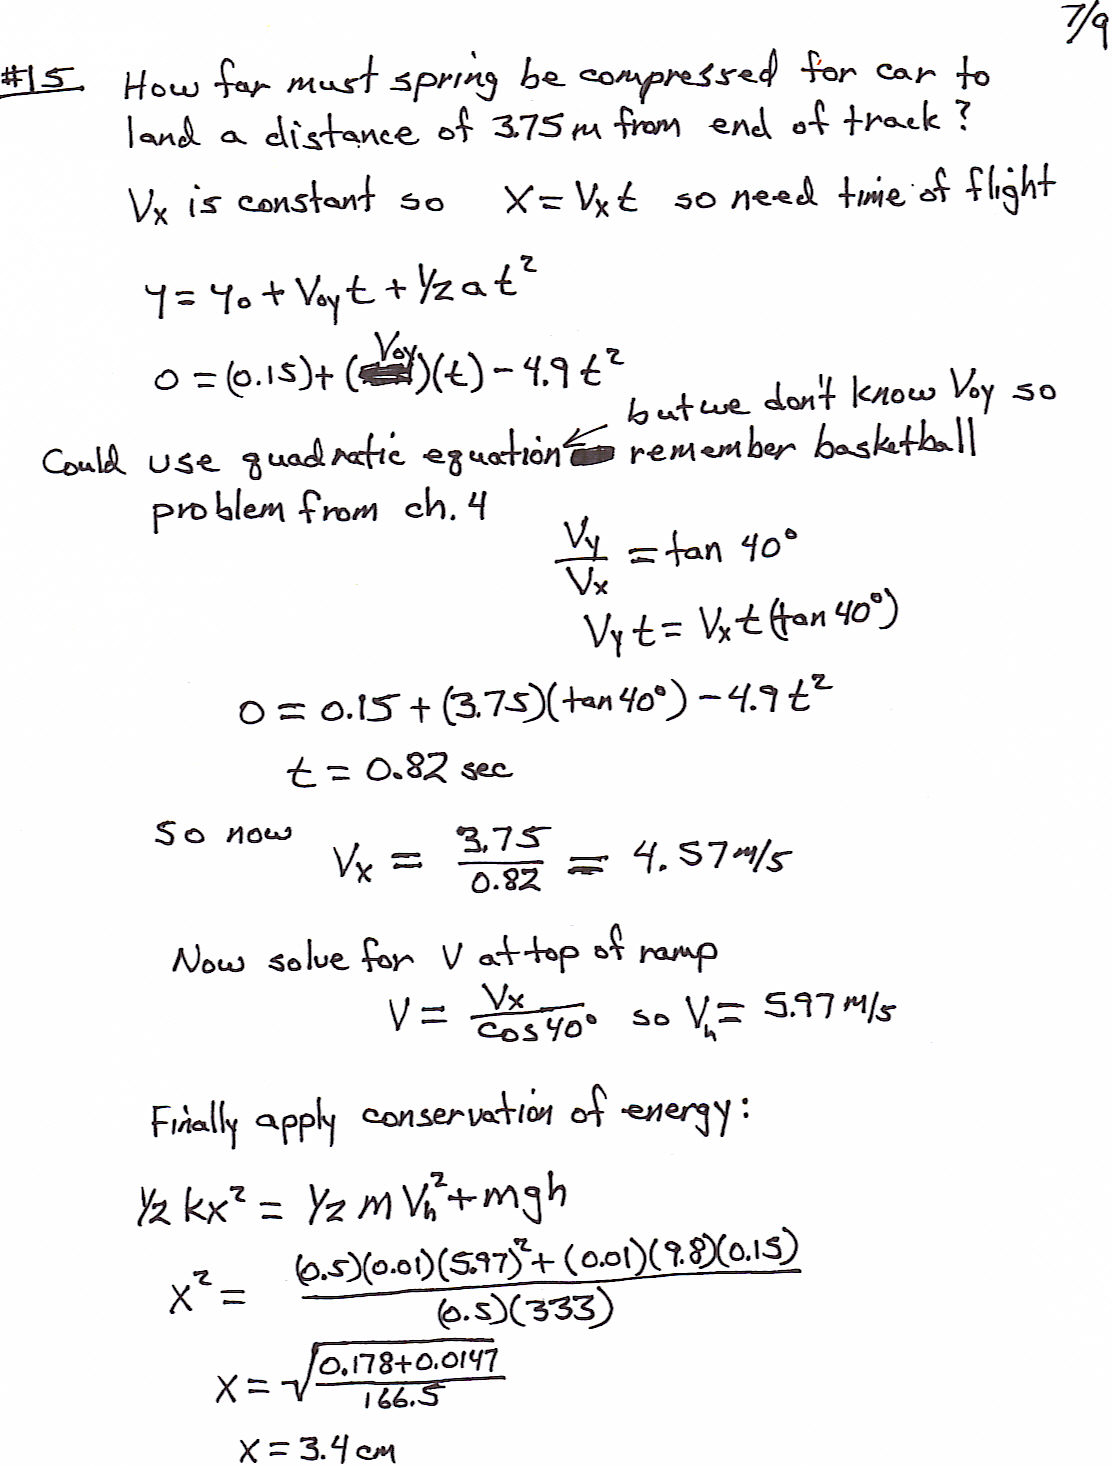 7/9
#15. How far must spring be compressed for car to
land a distance of 3.75 m from end of track?
Vx is constant so X = Vxt so need time of flight
y = y₀ + V₀yt + ½at²
0 = (0.15) + (V₀y)(t) - 4.9t²
but we don't know V₀y so
Could use quadratic equation ← remember basketball
problem from ch. 4
Vy/Vx = tan 40°
Vyt = Vxt(tan 40°)
0 = 0.15 + (3.75)(tan 40°) - 4.9t²
t = 0.82 sec
So now Vx = 3.75/0.82 = 4.57 m/s
Now solve for V at top of ramp
V = Vx/cos 40° so Vₕ = 5.97 m/s
Finally apply conservation of energy:
½kx² = ½mVₕ² + mgh
x² = (0.5)(0.01)(5.97)² + (0.01)(9.8)(0.15)
(0.5)(333)
x = √0.178+0.0147
166.5
x = 3.4 cm